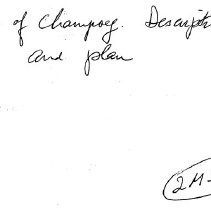 of Champoeg. Descript
and plan
2M-